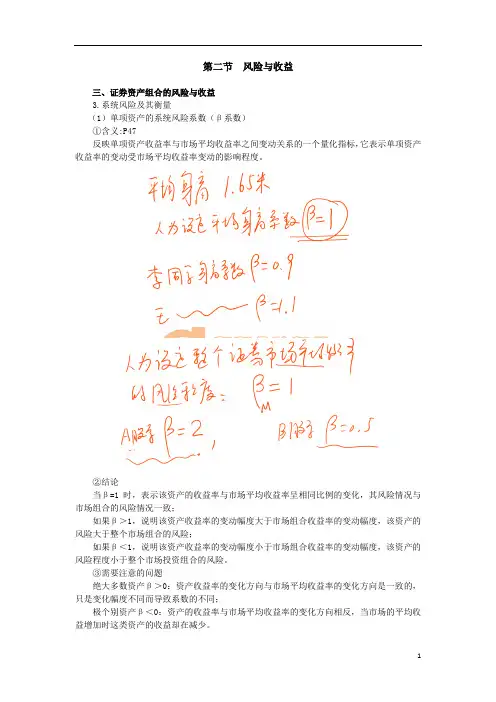 第二节 风险与收益
三、证券资产组合的风险与收益
3.系统风险及其衡量
(1)单项资产的系统风险系数(β系数)
①含义:P47
反映单项资产收益率与市场平均收益率之间变动关系的一个量化指标,它表示单项资产
收益率的变动受市场平均收益率变动的影响程度。
平均身高 1.65米
人为设定平均身高系数 β=1
李同学身高系数 β=0.9
王 β=1.1
人为设定整个证券市场平均收益率
的风险程度: βM=1
A股票 β=2, B股票 β=0.5
②结论
当β=1时,表示该资产的收益率与市场平均收益率呈相同比例的变化,其风险情况与
市场组合的风险情况一致;
如果β>1,说明该资产收益率的变动幅度大于市场组合收益率的变动幅度,该资产的
风险大于整个市场组合的风险;
如果β<1,说明该资产收益率的变动幅度小于市场组合收益率的变动幅度,该资产的
风险程度小于整个市场投资组合的风险。
③需要注意的问题
绝大多数资产β>0:资产收益率的变化方向与市场平均收益率的变化方向是一致的,
只是变化幅度不同而导致系数的不同;
极个别资产β<0:资产的收益率与市场平均收益率的变化方向相反,当市场的平均收
益增加时这类资产的收益却在减少。
1